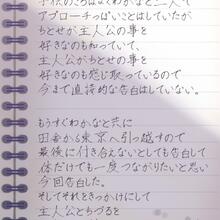 子供のころはよくわかなと二人で
アプローチっぽいことはしていたが
ちとせが主人公の事を
好きなのも知っていて、
主人公がちとせの事を
好きなのも感じ取っているので
今まで直接的な告白はしていない。
もうすぐわかなと共に
田舎から東京へ引っ越すので
最後に付き合えないとしても告白して
体だけでも一度つながりたいと思い
今回告白した。
そしてそれをきっかけにして
主人公とちづるを